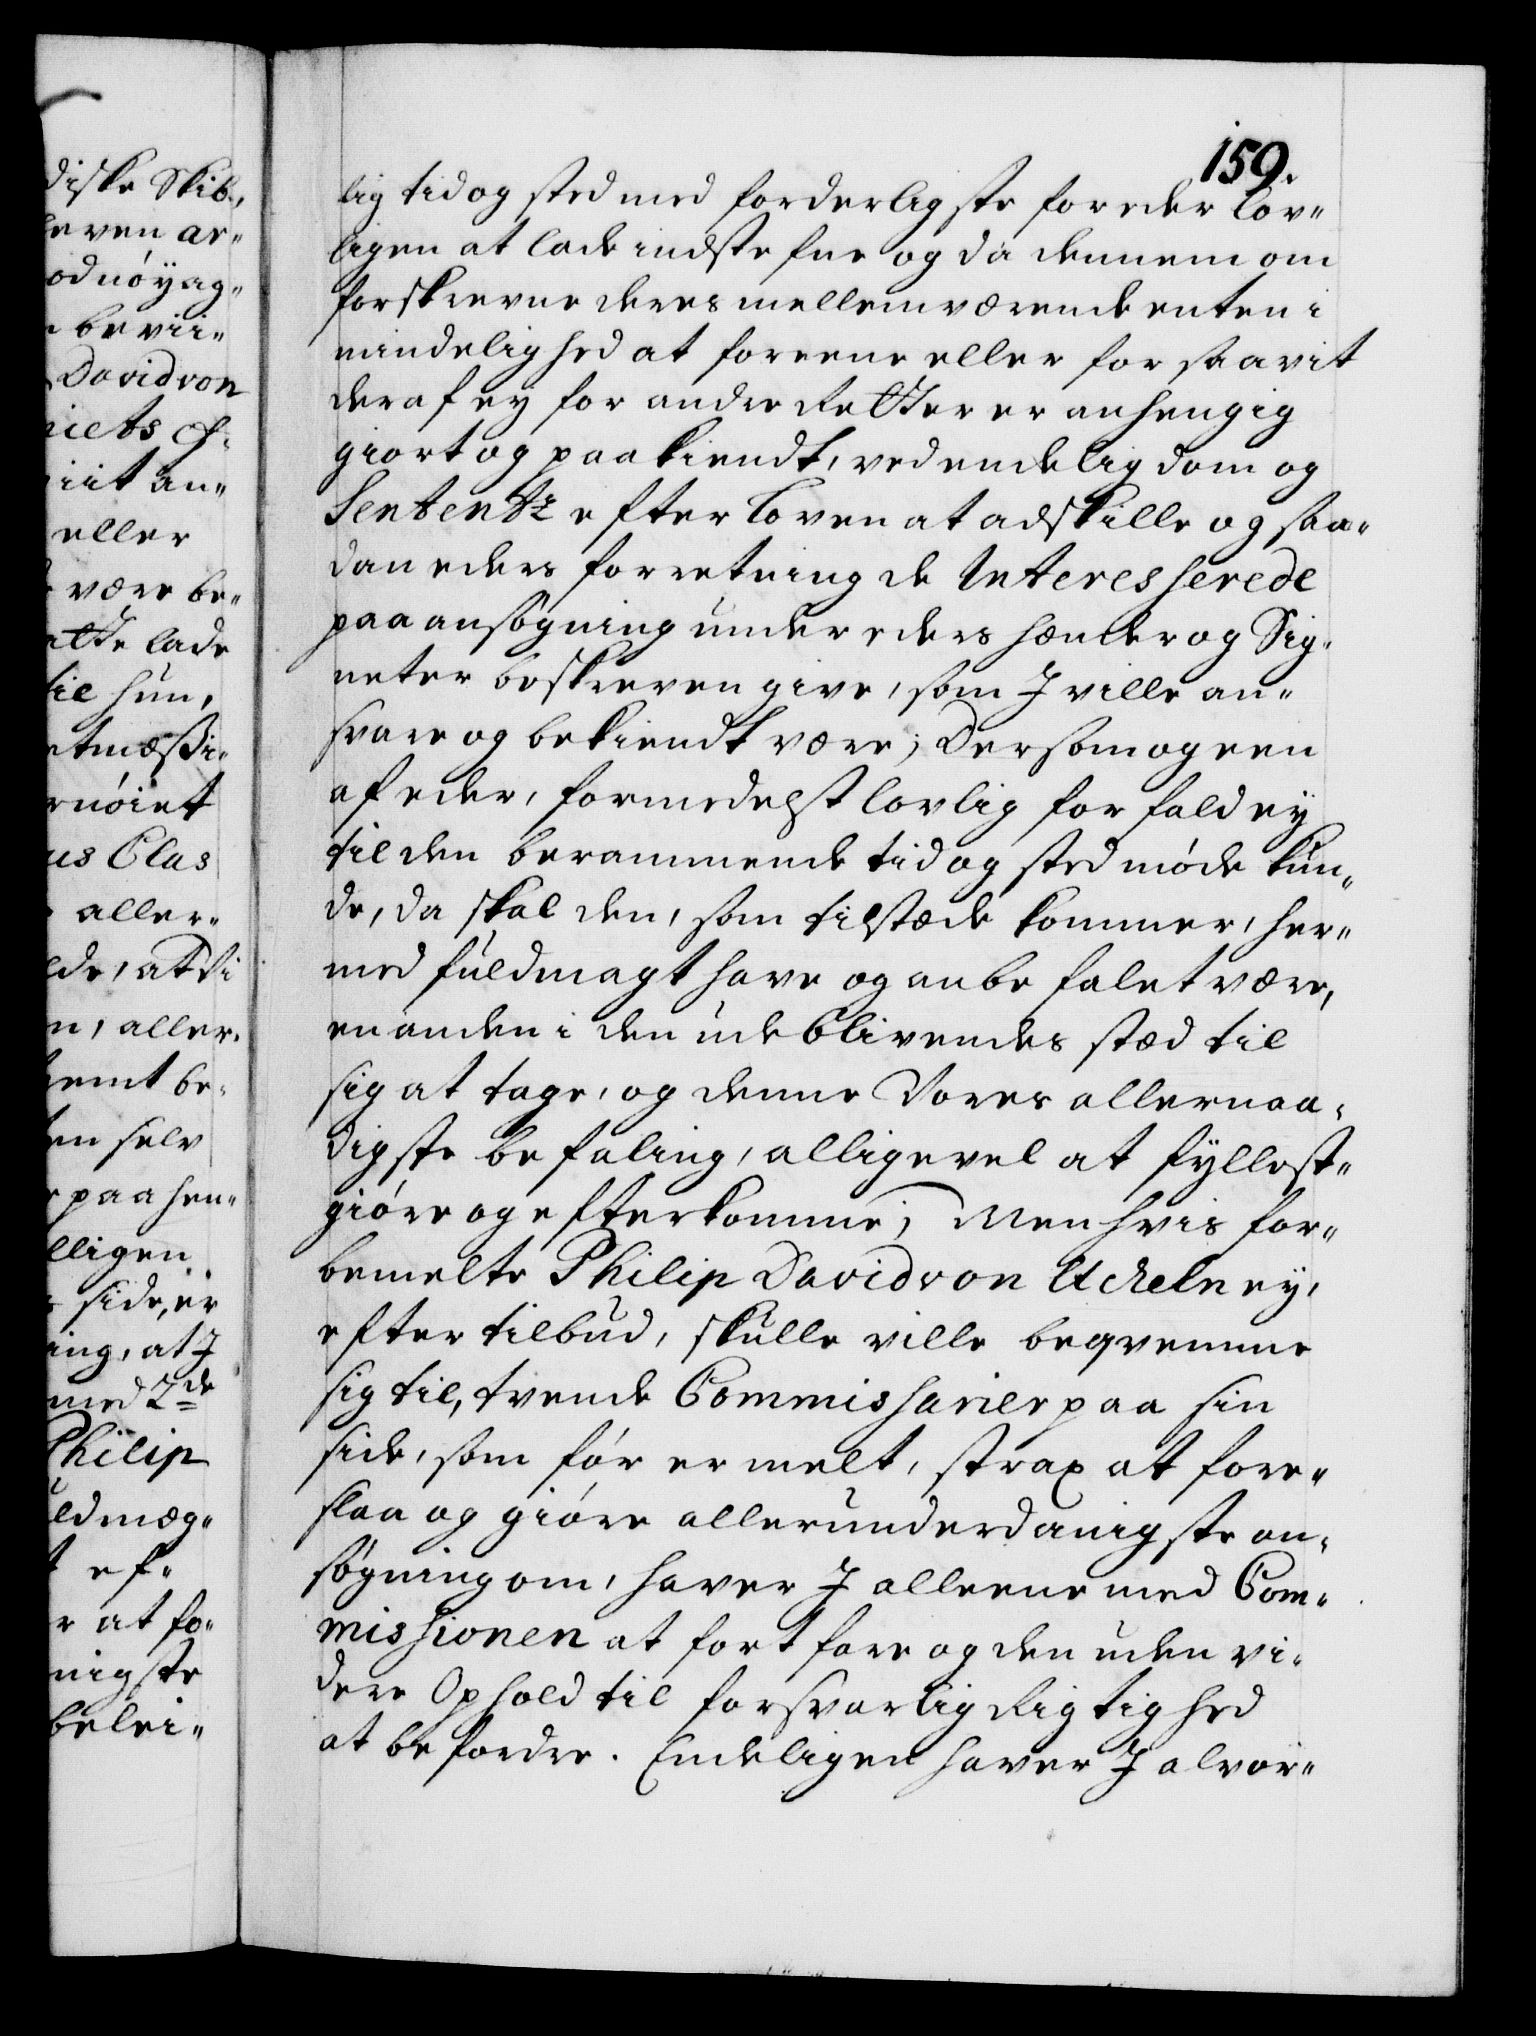 159.
lig tid og sted med forderligste for eder lov„
ligen at lade indstefne og da dennem om
forskrevne deres mellemværende enten i
mindelighed at foreene eller for saavit
deraf ey for andre Retter er anhengig
giort og paakiendt, ved endelig dom og
Sententz efter Loven at adskille og saa„
dan eders forretning de Interesserede
paa ansøgning under eders hænder og Sig„
neter beskreven give, som J ville an„
svare og bekiendt være; Dersom og een
af eder, formedelst lovlig forfald ey
til den berammende tid og sted møde kun„
de, da skal den, som tilstæde kommer, her„
med fuldmagt have og anbefalet være,
en anden i den udeblivendes stæd til
sig at tage, og denne Vores allernaa„
digste befaling, alligevel at fyllest„
giøre og efterkomme; Men hvis for„
bemelte Philip David von Ucheln ey,
efter tilbud, skulle ville beqvemme
sig til, tvende Commissarier paa sin
side, som før er melt, strax at fore„
slaa og giøre allerunderdanigste an„
søgning om, haver J alleene med Com„
missionen at fortfare og den uden vi„
dere Ophold til forsvarlig Rigtighed
at befordre. Endeligen haver J alvor„
diske Skib,
leven ar„
od nøyag„
bevii„
David von
niets
iit an„
eller
være be„
atte lade
til hun,
etmæssi„
rnøiet
us Clas
aller„
lde, at Vi
n, aller„
emt be„
en selv
paa hen„
lligen
side, er
ing, at J
med 2de
Philip
uldmæg„
ef„
r at fo„
nigste
belei„